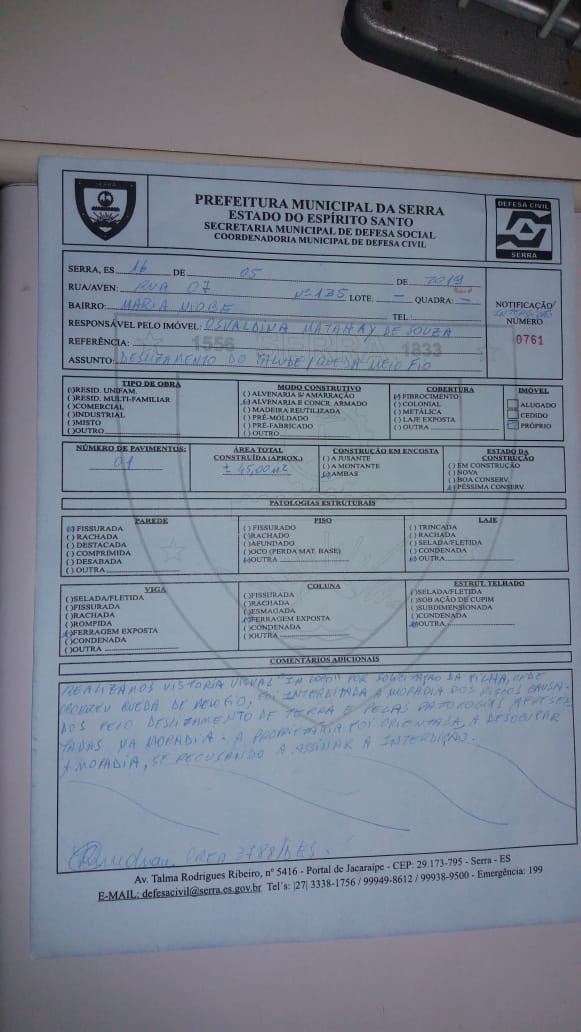 SERRA
PREFEITURA MUNICIPAL DA SERRA
ESTADO DO ESPÍRITO SANTO
SECRETARIA MUNICIPAL DE DEFESA SOCIAL
COORDENADORIA MUNICIPAL DE DEFESA CIVIL
DEFESA CIVIL
SERRA
SERRA, ES 16 DE 05 DE 2019
RUA/AVEN: RUA 07 Nº 135 LOTE: - QUADRA: -
BAIRRO: MARIA NIOBE TEL.:
RESPONSÁVEL PELO IMÓVEL: OSVALDINA DE SOUZA
REFERÊNCIA:
ASSUNTO: DESLIZAMENTO DO TALUDE / QUEDA MEIO FIO
NOTIFICAÇÃO/
INTERDIÇÃO
NÚMERO
0761
1556 SERRA 1833
TIPO DE OBRA
(x)RESID. UNIFAM.
( )RESID. MULTI-FAMILIAR
( )COMERCIAL
( )INDUSTRIAL
( )MISTO
( )OUTRO
MODO CONSTRUTIVO
( ) ALVENARIA S/ AMARRAÇÃO
(x) ALVENARIA E CONCR. ARMADO
( ) MADEIRA REUTILIZADA
( ) PRÉ-MOLDADO
( ) PRÉ-FABRICADO
( ) OUTRO
COBERTURA
(x) FIBROCIMENTO
( ) COLONIAL
( ) METÁLICA
( ) LAJE EXPOSTA
( ) OUTRA
IMÓVEL
ALUGADO
CEDIDO
PRÓPRIO
NÚMERO DE PAVIMENTOS:
01
ÁREA TOTAL
CONSTRUÍDA (APROX.)
± 45,00 m2
CONSTRUÇÃO EM ENCOSTA
( ) A JUSANTE
( ) A MONTANTE
(x) AMBAS
ESTADO DA
CONSTRUÇÃO
( ) EM CONSTRUÇÃO
( ) NOVA
( ) BOA CONSERV.
(x) PÉSSIMA CONSERV.
PATOLOGIAS ESTRUTURAIS
PAREDE
(x) FISSURADA
( ) RACHADA
( ) DESTACADA
( ) COMPRIMIDA
( ) DESABADA
( ) OUTRA
PISO
( ) FISSURADO
( ) RACHADO
( ) AFUNDADO
( ) OCO (PERDA MAT. BASE)
(x) OUTRA
LAJE
( ) TRINCADA
( ) RACHADA
( ) SELADA/FLETIDA
( ) CONDENADA
(x) OUTRA
VIGA
( )SELADA/FLETIDA
( )FISSURADA
( )RACHADA
( )ROMPIDA
(x)FERRAGEM EXPOSTA
( )CONDENADA
( )OUTRA
COLUNA
( )FISSURADA
( )RACHADA
( )ESMAGADA
(x)FERRAGEM EXPOSTA
( )CONDENADA
( )OUTRA
ESTRUT. TELHADO
( )SELADA/FLETIDA
( )SOB AÇÃO DE CUPIM
( )SUBDIMENSIONADA
( )CONDENADA
(x)OUTRA
COMENTÁRIOS ADICIONAIS
REALIZAMOS VISTORIA VISUAL "IN LOCO" POR SOLICITAÇÃO DA FILHA, ONDE
OCORREU QUEDA DE MEIO FIO, FOI INTERDITADA A MORADIA DOS RISCOS CAUSA-
DOS PELO DESLIZAMENTO DE TERRA E PELAS PATOLOGIAS APRESEN
TADAS NA MORADIA. A PROPRIETÁRIA FOI ORIENTADA A DESOCUPAR
A MORADIA, SE RECUSANDO A ASSINAR A INTERDIÇÃO.
CREA
Av. Talma Rodrigues Ribeiro, nº 5416 - Portal de Jacaraípe - CEP: 29.173-795 - Serra - ES
E-MAIL: defesacivil@serra.es.gov.br Tel´s: |27| 3338-1756 / 99949-8612 / 99938-9500 - Emergência: 199